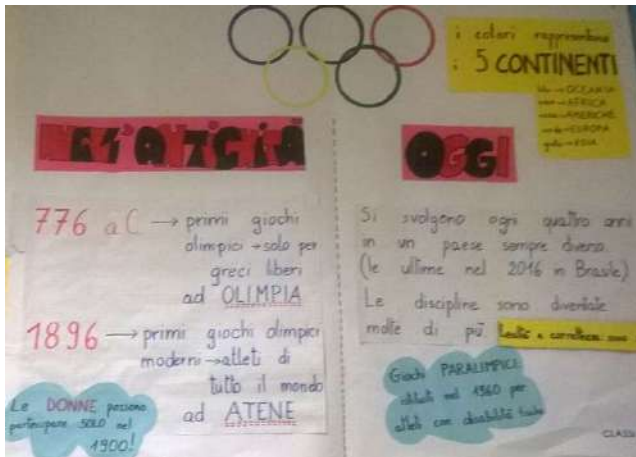 i colori rappresentano
i 5 CONTINENTI
blu → OCEANIA
nero → AFRICA
rosso → AMERICHE
verde → EUROPA
giallo → ASIA
NELL'ANTICHITÀ
776 a C → primi giochi
olimpici → solo per
greci liberi
ad OLIMPIA
1896 → primi giochi olimpici
moderni → atleti di
tutto il mondo
ad ATENE
Le DONNE possono
partecipare SOLO nel
1900!
OGGI
Si svolgono ogni quattro anni
in un paese sempre diverso.
(le ultime nel 2016 in Brasile)
Le discipline sono diventate
molte di più. Lealtà e correttezza sono
Giochi PARALIMPICI
istituiti nel 1960 per
atleti con disabilità fisiche